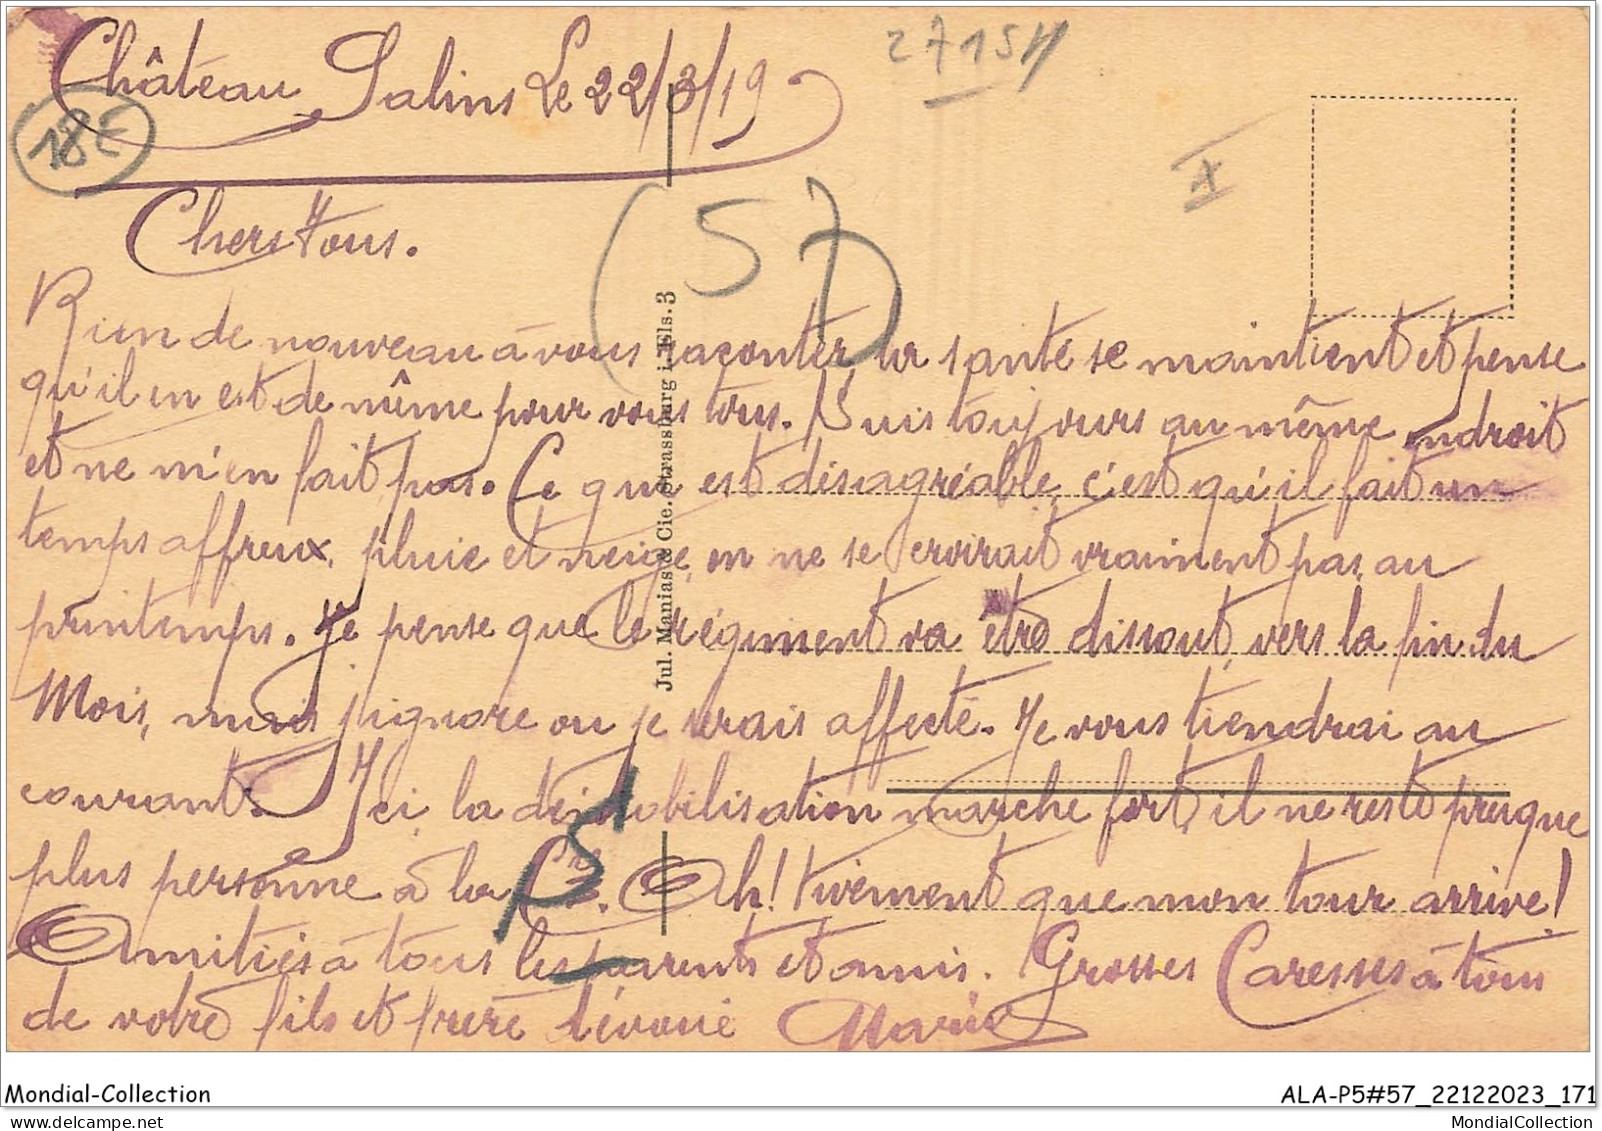 Château Salins Le 22/3/19
27154
18E
X
(57)
Chers Tous.
Rien de nouveau à vous raconter, la santé se maintient et pense
qu'il en est de même pour vous tous. Suis toujours au même endroit
et ne m'en fait pas. Ce que est désagréable, c'est qu'il fait un
temps affreux, pluie et neige, on ne se croirait vraiment pas au
printemps. Je pense que le régiment va être dissout, vers la fin du
Mois, mais j'ignore ou je serais affecté. Je vous tiendrai au
courant. Ici, la démobilisation marche fort, il ne reste presque
plus personne à la Cie. Ah! vivement que mon tour arrive!
Amitiés à tous les parents et amis. Grosses Caresses à tous
de votre fils et frère dévoué
Jul. Manias & Cie. Strassburg i. Els. 3
Mondial-Collection
ALA-P5#57_22122023_171
Mondial-Collection.net
MondialCollection